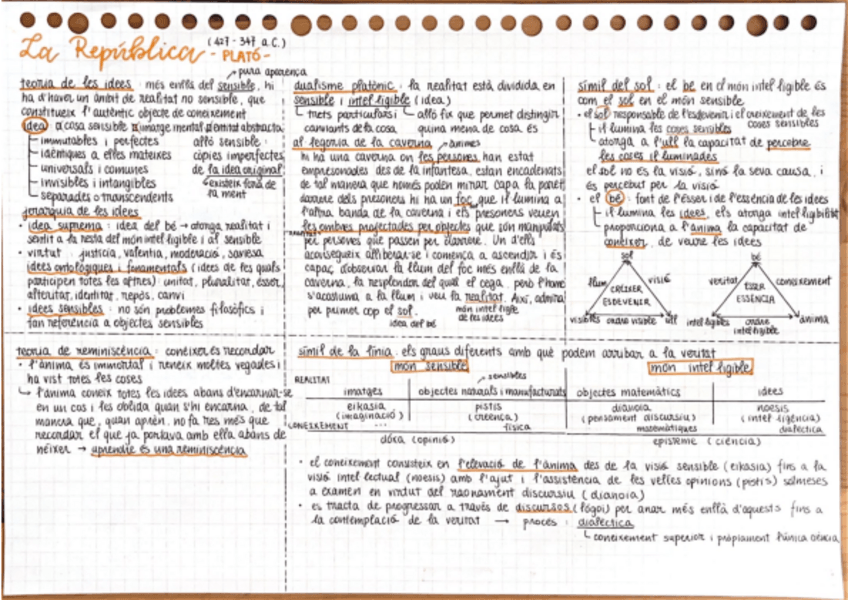 La República (427 - 347 a.C.)
- PLATÓ -
teoria de les idees : més enllà del sensible, hi
pura aparença
ha d'haver un àmbit de realitat no sensible, que
constitueix l'autèntic objecte de coneixement
idea ≠ cosa sensible ≠ imatge mental d'entitat abstracta
immutables i perfectes
idèntiques a elles mateixes
universals i comunes
invisibles i intangibles
separades o transcendents
allò sensible :
còpies imperfectes
de la idea original
existeix fora de
la ment
jerarquia de les idees
• idea suprema : idea del bé → atorga realitat i
sentit a la resta del món intel·ligible i al sensible
• virtut : justícia, valentia, moderació, saviesa
idees ontològiques i fonamentals (idees de les quals
participen totes les altres) : unitat, pluralitat, ésser,
alteritat, identitat, repòs, canvi
• idees sensibles : no són problemes filosòfics i
fan referència a objectes sensibles
dualisme platònic : la realitat està dividida en
sensible i intel·ligible (idea)
trets particulars i
canviants de la cosa
allò fix que permet distingir
quina mena de cosa és
al·legoria de la caverna
ànimes
hi ha una caverna on les persones han estat
empresonades des de la infantesa, estan encadenats
de tal manera que només poden mirar cap a la paret
darrere dels presoners hi ha un foc que il·lumina a
l'altra banda de la caverna i els presoners veuen
les ombres projectades per objectes que són manipulats
per persones que passen per darrere. Un d'ells
aconsegueix alliberar-se i comença a ascendir i és
capaç d'observar la llum del foc més enllà de la
caverna, la resplendor del qual el cega, però l'home
s'acostuma a la llum i veu la realitat. Així, admira
per primer cop el sol.
món intel·ligible
de les idees
idea del bé
símil del sol : el bé en el món intel·ligible és
com el sol en el món sensible
• el sol responsable de l'esdevenir i el creixement de les
coses sensibles
il·lumina les coses sensibles
atorga a l'ull la capacitat de percebre
les coses il·luminades
el sol no és la visió, sinó la seva causa, i
és percebut per la visió
• el bé : font de l'ésser i de l'essència de les idees
il·lumina les idees, els atorga intel·ligibilitat
proporciona a l'ànima la capacitat de
conèixer, de veure les idees
sol
llum
visió
CRÉIXER
ESDEVENIR
visibles ordre visible ull
bé
veritat
coneixement
ÉSSER
ESSÈNCIA
intel·ligibles
ordre
intel·ligible
ànima
teoria de reminiscència : conèixer és recordar
• l'ànima és immortal i reneix moltes vegades i
ha vist totes les coses
l'ànima coneix totes les idees abans d'encarnar-se
en un cos i les oblida quan s'hi encarna, de tal
manera que, quan aprèn, no fa res més que
recordar el que ja portava amb ella abans de
néixer → aprendre és una reminiscència
símil de la línia : els graus diferents amb què podem arribar a la veritat
món sensible
món intel·ligible
REALITAT
sensibles
imatges
objectes naturals i manufacturats
objectes matemàtics
idees
eikasia
(imaginació)
pistis
(creença)
dianoia
(pensament discursiu)
noesis
(intel·ligència)
CONEIXEMENT ...
física
matemàtiques
dialèctica
dóxa (opinió)
episteme (ciència)
• el coneixement consisteix en l'elevació de l'ànima des de la visió sensible (eikasia) fins a la
visió intel·lectual (noesis) amb l'ajut i l'assistència de les velles opinions (pistis) sotmeses
a examen en virtut del raonament discursiu (dianoia)
• es tracta de progressar a través de discursos (lógoi) per anar més enllà d'aquests fins a
la contemplació de la veritat → procés : dialèctica
coneixement superior i pròpiament l'única ciència